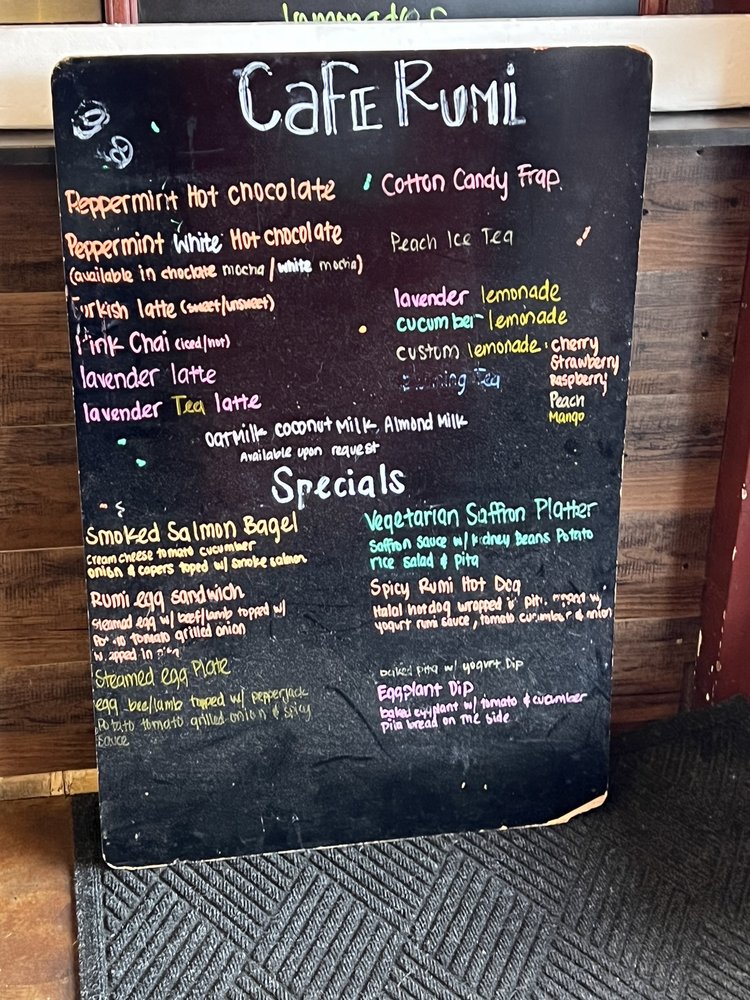 lemonades
CaFE RUMi
Peppermint Hot chocolate
Peppermint White Hot chocolate
(available in choclate mocha / white mocha)
Turkish latte (sweet/unsweet)
Pink Chai (iced/hot)
lavender latte
lavender Tea latte
Cotton Candy Frap.
Peach Ice Tea
lavender lemonade
cucumber lemonade
custom lemonade • cherry
Strawberry
Raspberry
Peach
Mango
Tea
Oatmilk coconut Milk, Almond Milk
Available upon request
Specials
Smoked Salmon Bagel
cream cheese tomato cucumber
onion & capers toped w/ smoke salmon
Rumi egg sandwich
Steamed egg w/ beef/lamb topped w/
Potato tomato grilled onion
wrapped in pita
Steamed egg Plate
egg beef/lamb topped w/ pepperjack
Potato tomato grilled onion & spicy
sauce
Vegetarian Saffron Platter
Saffron sauce w/ kidney Beans Potato
rice salad & pita
Spicy Rumi Hot Dog
Halal hotdog wrapped in pita, topped w/
yogurt rumi sauce, tomato cucumber & onion
baked pita w/ yogurt Dip
Eggplant Dip
baked eggplant w/ tomato & cucumber
pita bread on the side